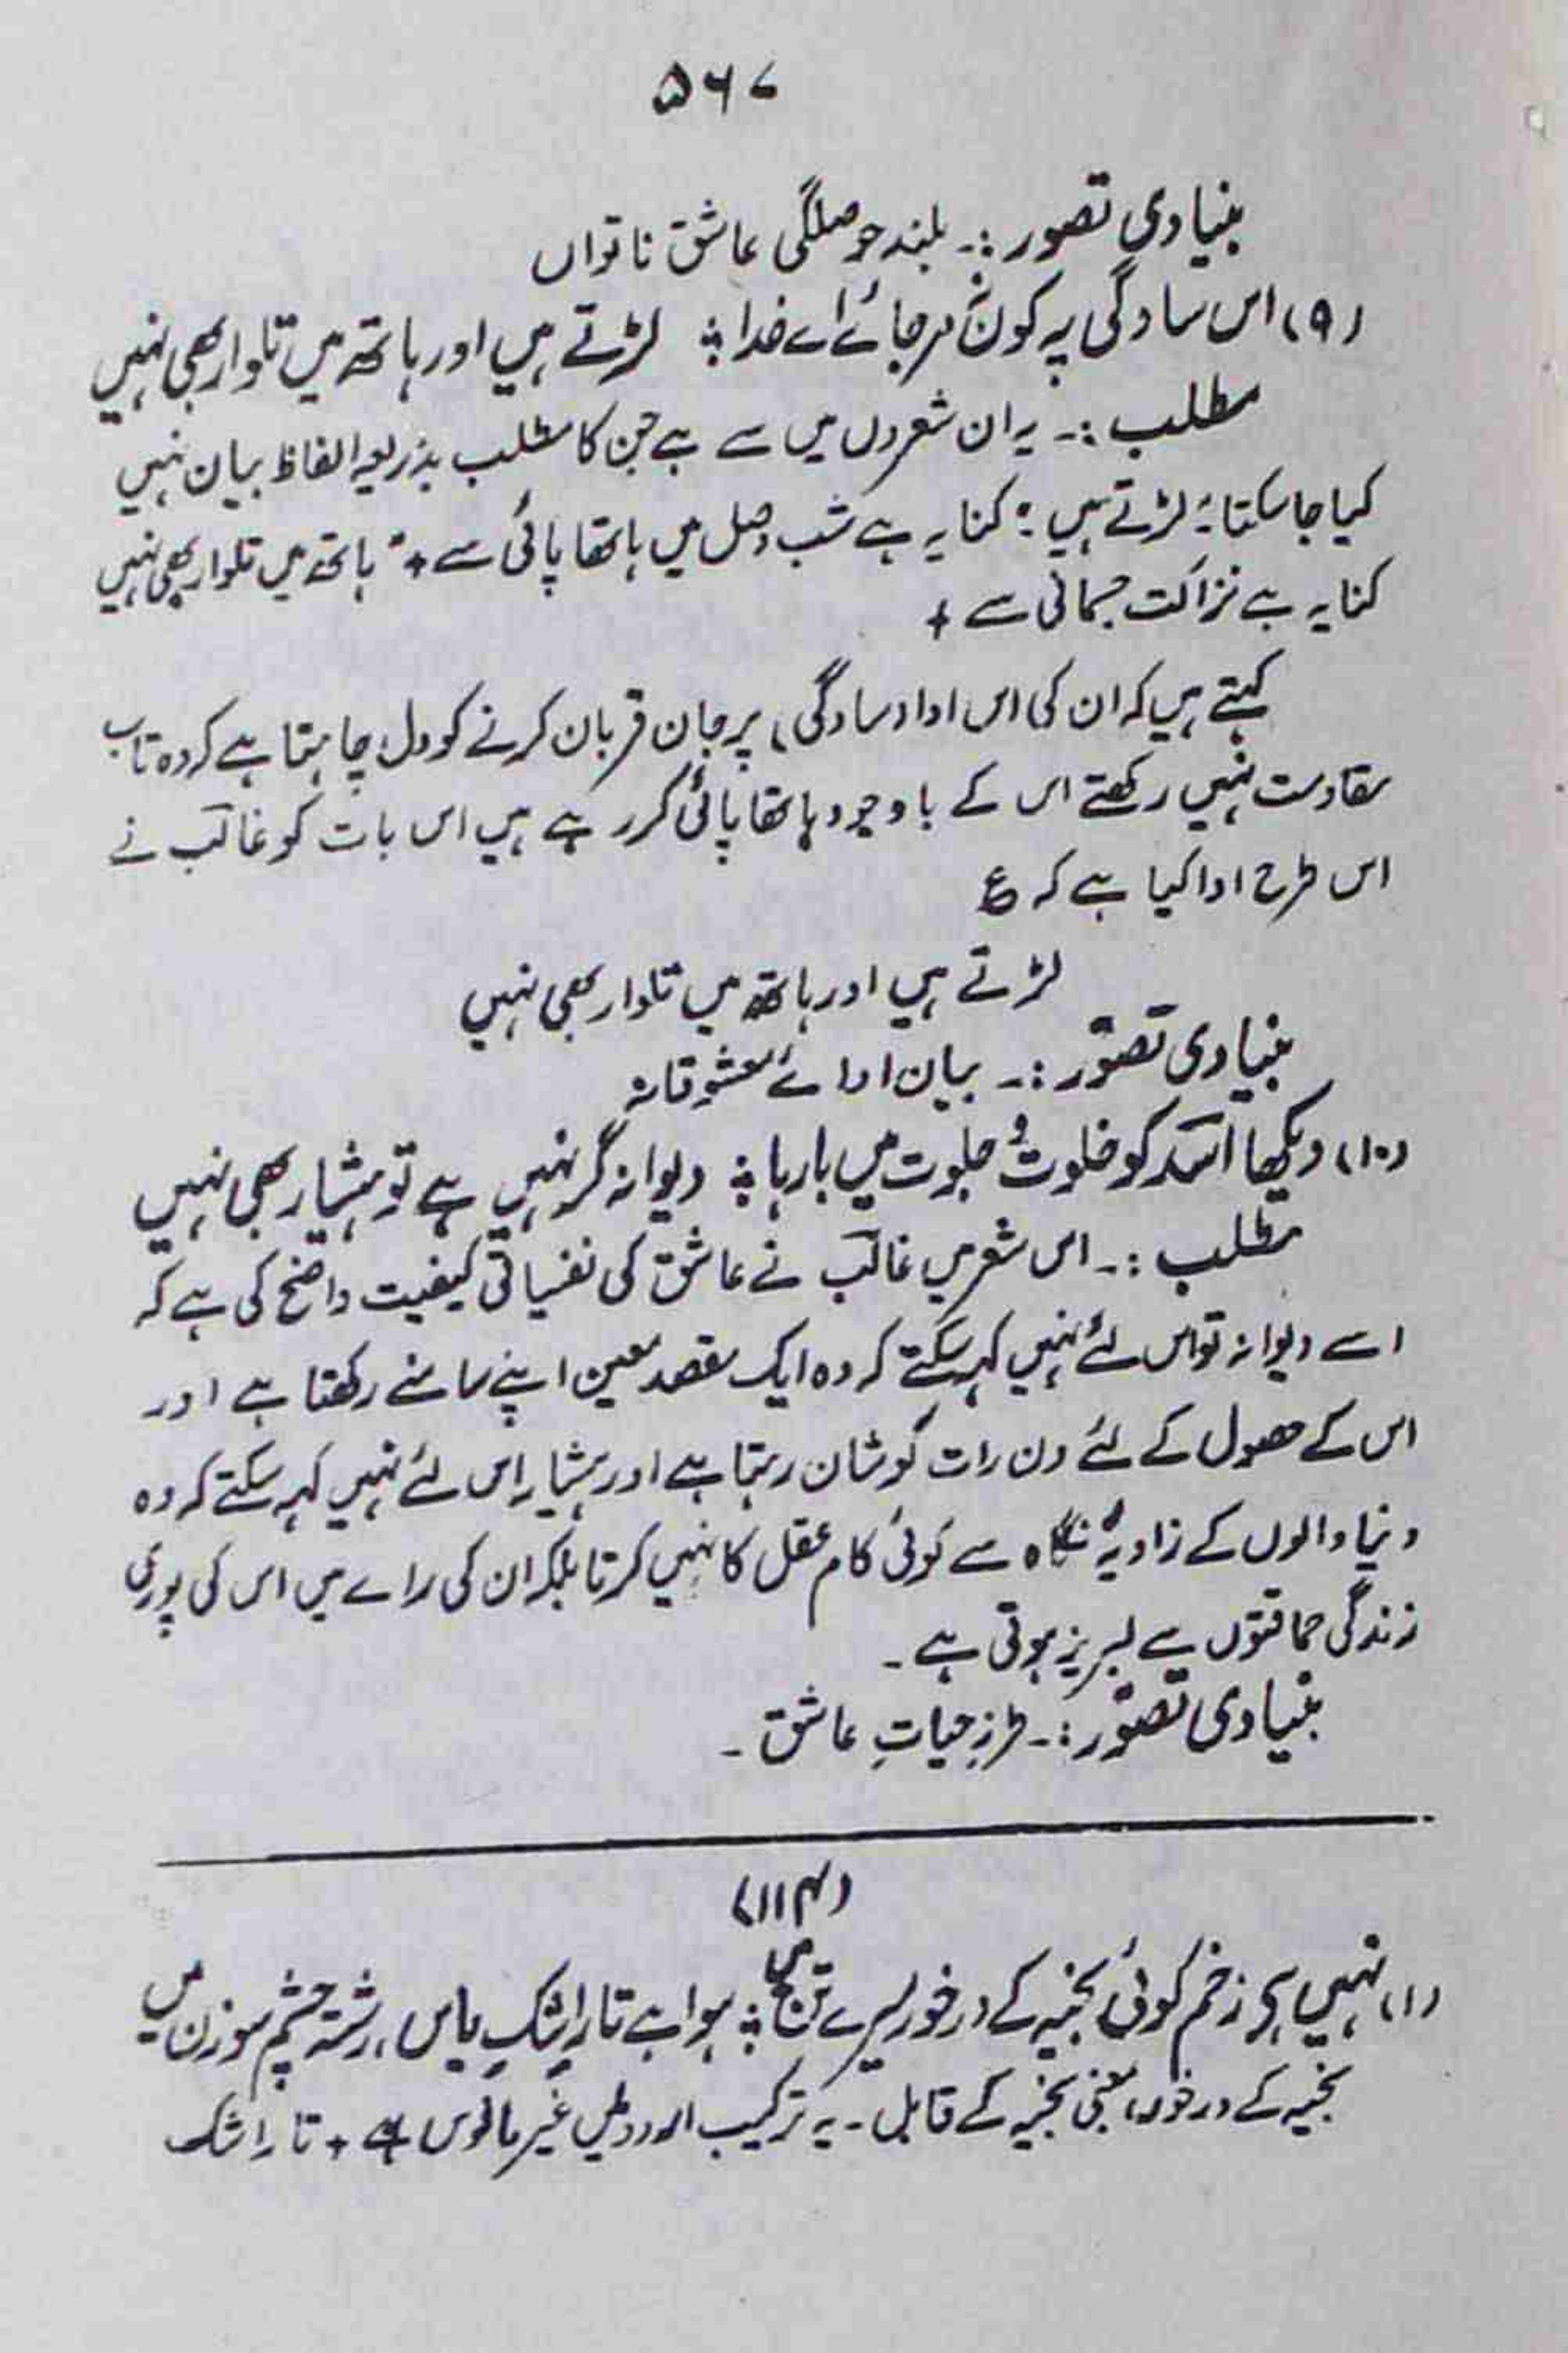 ۵۶۷
بنیادی تصور :۔ بلند حوصلگی عاشق ناتواں
(۹) اس سادگی پہ کون نہ مر جائے اے خدا ؛ لڑتے ہیں اور ہاتھ میں تلوار بھی نہیں
مطلب :۔ یہ ان شعروں میں سے ہے جن کا مطلب بذریعہ الفاظ بیان نہیں
کیا جا سکتا "لڑتے ہیں" کنایہ ہے شب وصل میں ہاتھا پائی سے + "ہاتھ میں تلوار بھی نہیں
کنایہ ہے نزاکت جسمانی سے +
کہتے ہیں کہ ان کی اس ادا (سادگی) پر جان قربان کرنے کو دل چاہتا ہے کہ وہ تاب
مقاومت نہیں رکھتے اس کے باوجود ہاتھا پائی کر رہے ہیں اس بات کو غالب نے
اس طرح ادا کیا ہے کہ ع
لڑتے ہیں اور ہاتھ میں تلوار بھی نہیں
بنیادی تصوّر :۔ بیان ادائے معشوقانہ
(۱۰) دیکھا اسؔد کو خلوت و جلوت میں بارہا ؛ دیوانہ گر نہیں ہے تو ہشیار بھی نہیں
مطلب :۔ اس شعر میں غالبؔ نے عاشق کی نفسیاتی کیفیت واضح کی ہے کہ
اسے دیوانہ تو اس لئے نہیں کہہ سکتے کہ وہ ایک مقصد معین اپنے سامنے رکھتا ہے اور
اس کے حصول کے لئے دن رات کوشان رہتا ہے اور ہشیار اس لئے نہیں کہہ سکتے کہ وہ
دنیا والوں کے زاویۂ نگاہ سے کوئی کام عقل کا نہیں کرتا بلکہ ان کی رائے میں اس کی پوری
زندگی حماقتوں سے لبریز ہوتی ہے ۔
بنیادی تصوّر :۔ طرزِ حیاتِ عاشق ۔
(۱۱۴)
(۱) نہیں ہے زخم کوئی بخیہ کے درخور مرے تن میں ؛ ہوا ہے تارِ اشکِ یاس، رشتہ چشمِ سوزن میں
بخیہ کے درخور بمعنی بخیہ کے قابل ۔ یہ ترکیب اردو میں غیر مانوس ہے + تار اشک